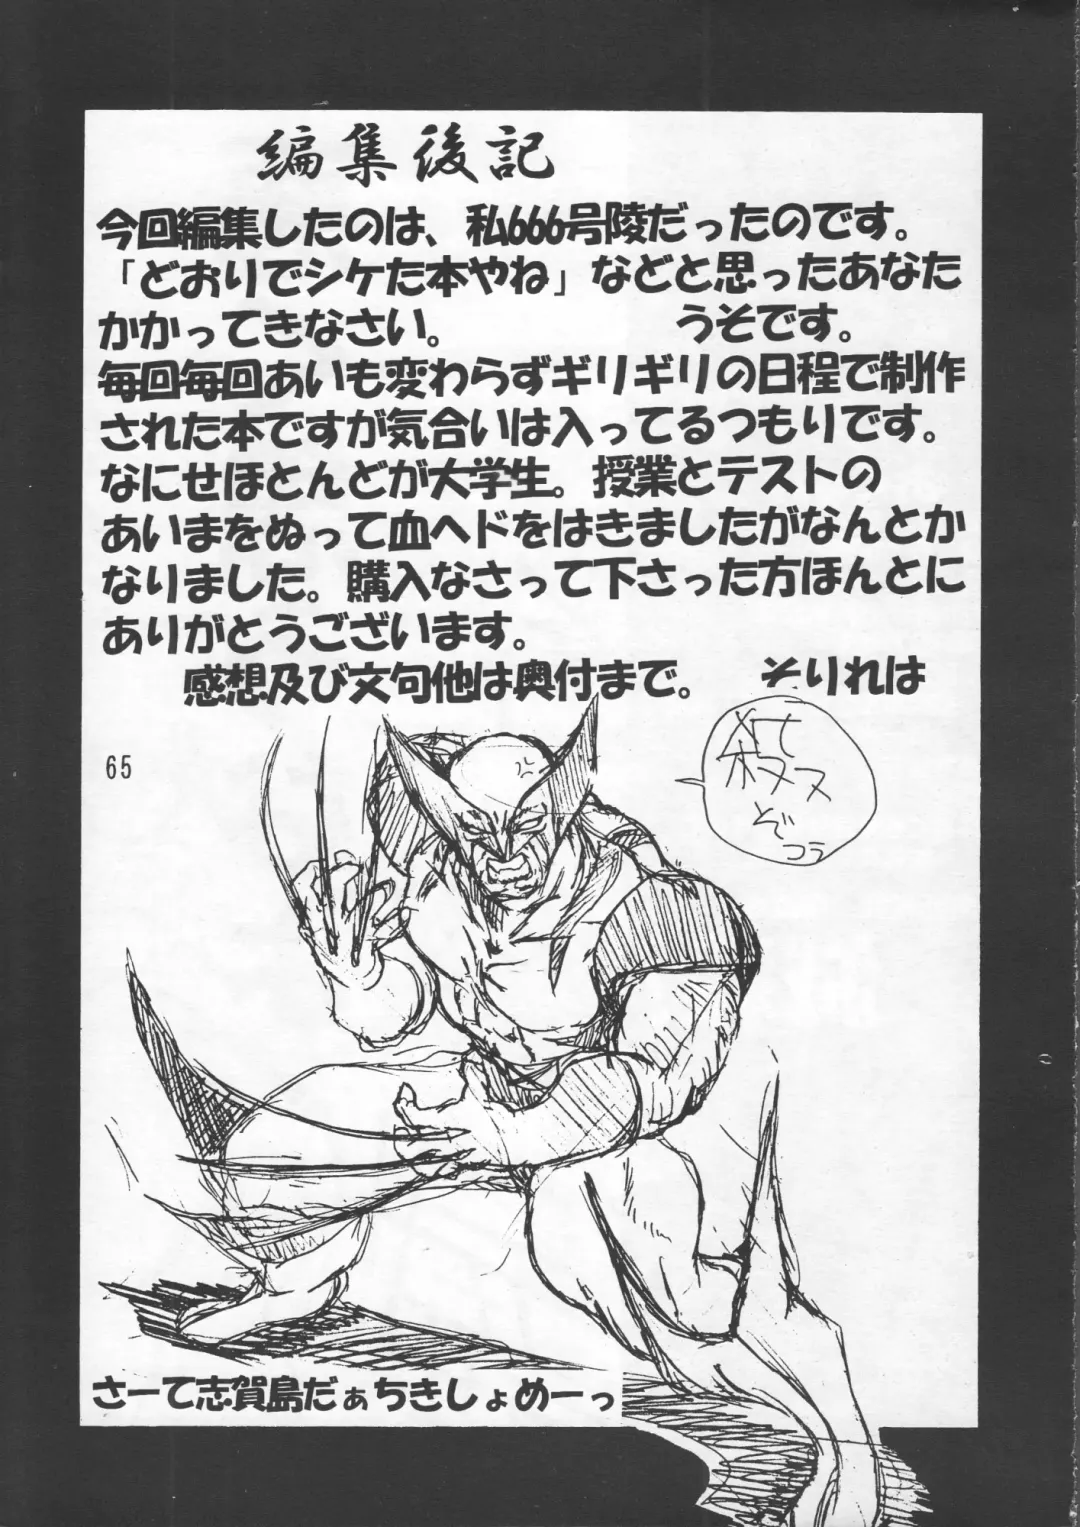 編集後記
今回編集したのは、私666号陵だったのです。
「どおりでシケた本やね」などと思ったあなた
かかってきなさい。 うそです。
毎回毎回あいも変わらずギリギリの日程で制作
された本ですが気合いは入ってるつもりです。
なにせほとんどが大学生。授業とテストの
あいまをぬって血ヘドをはきましたがなんとか
なりました。購入なさって下さった方ほんとに
ありがとうございます。
感想及び文句他は奥付まで。 そりれは
65
ぞ
コラ
さーて志賀島だぁちきしょめーっ